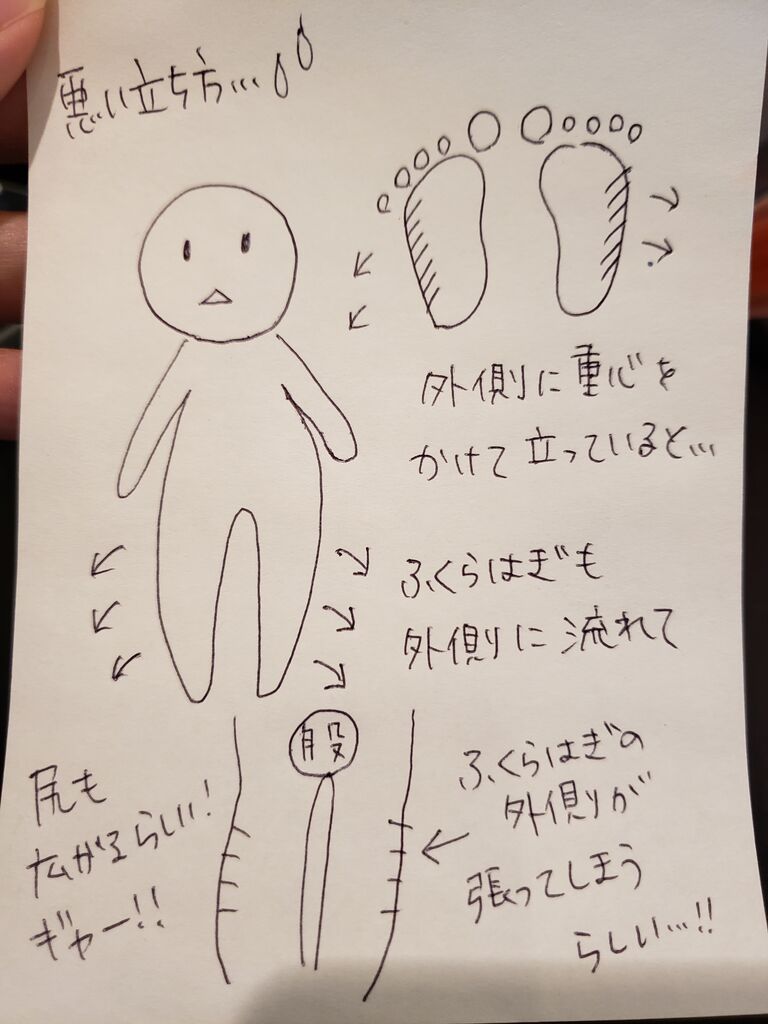 悪い立ち方…
外側に重心を
かけて立っていると…
ふくらはぎも
外側に流れて
股
ふくらはぎの
外側が
張ってしまう
らしい…!!
尻も
広がるらしい!
ギャー!!